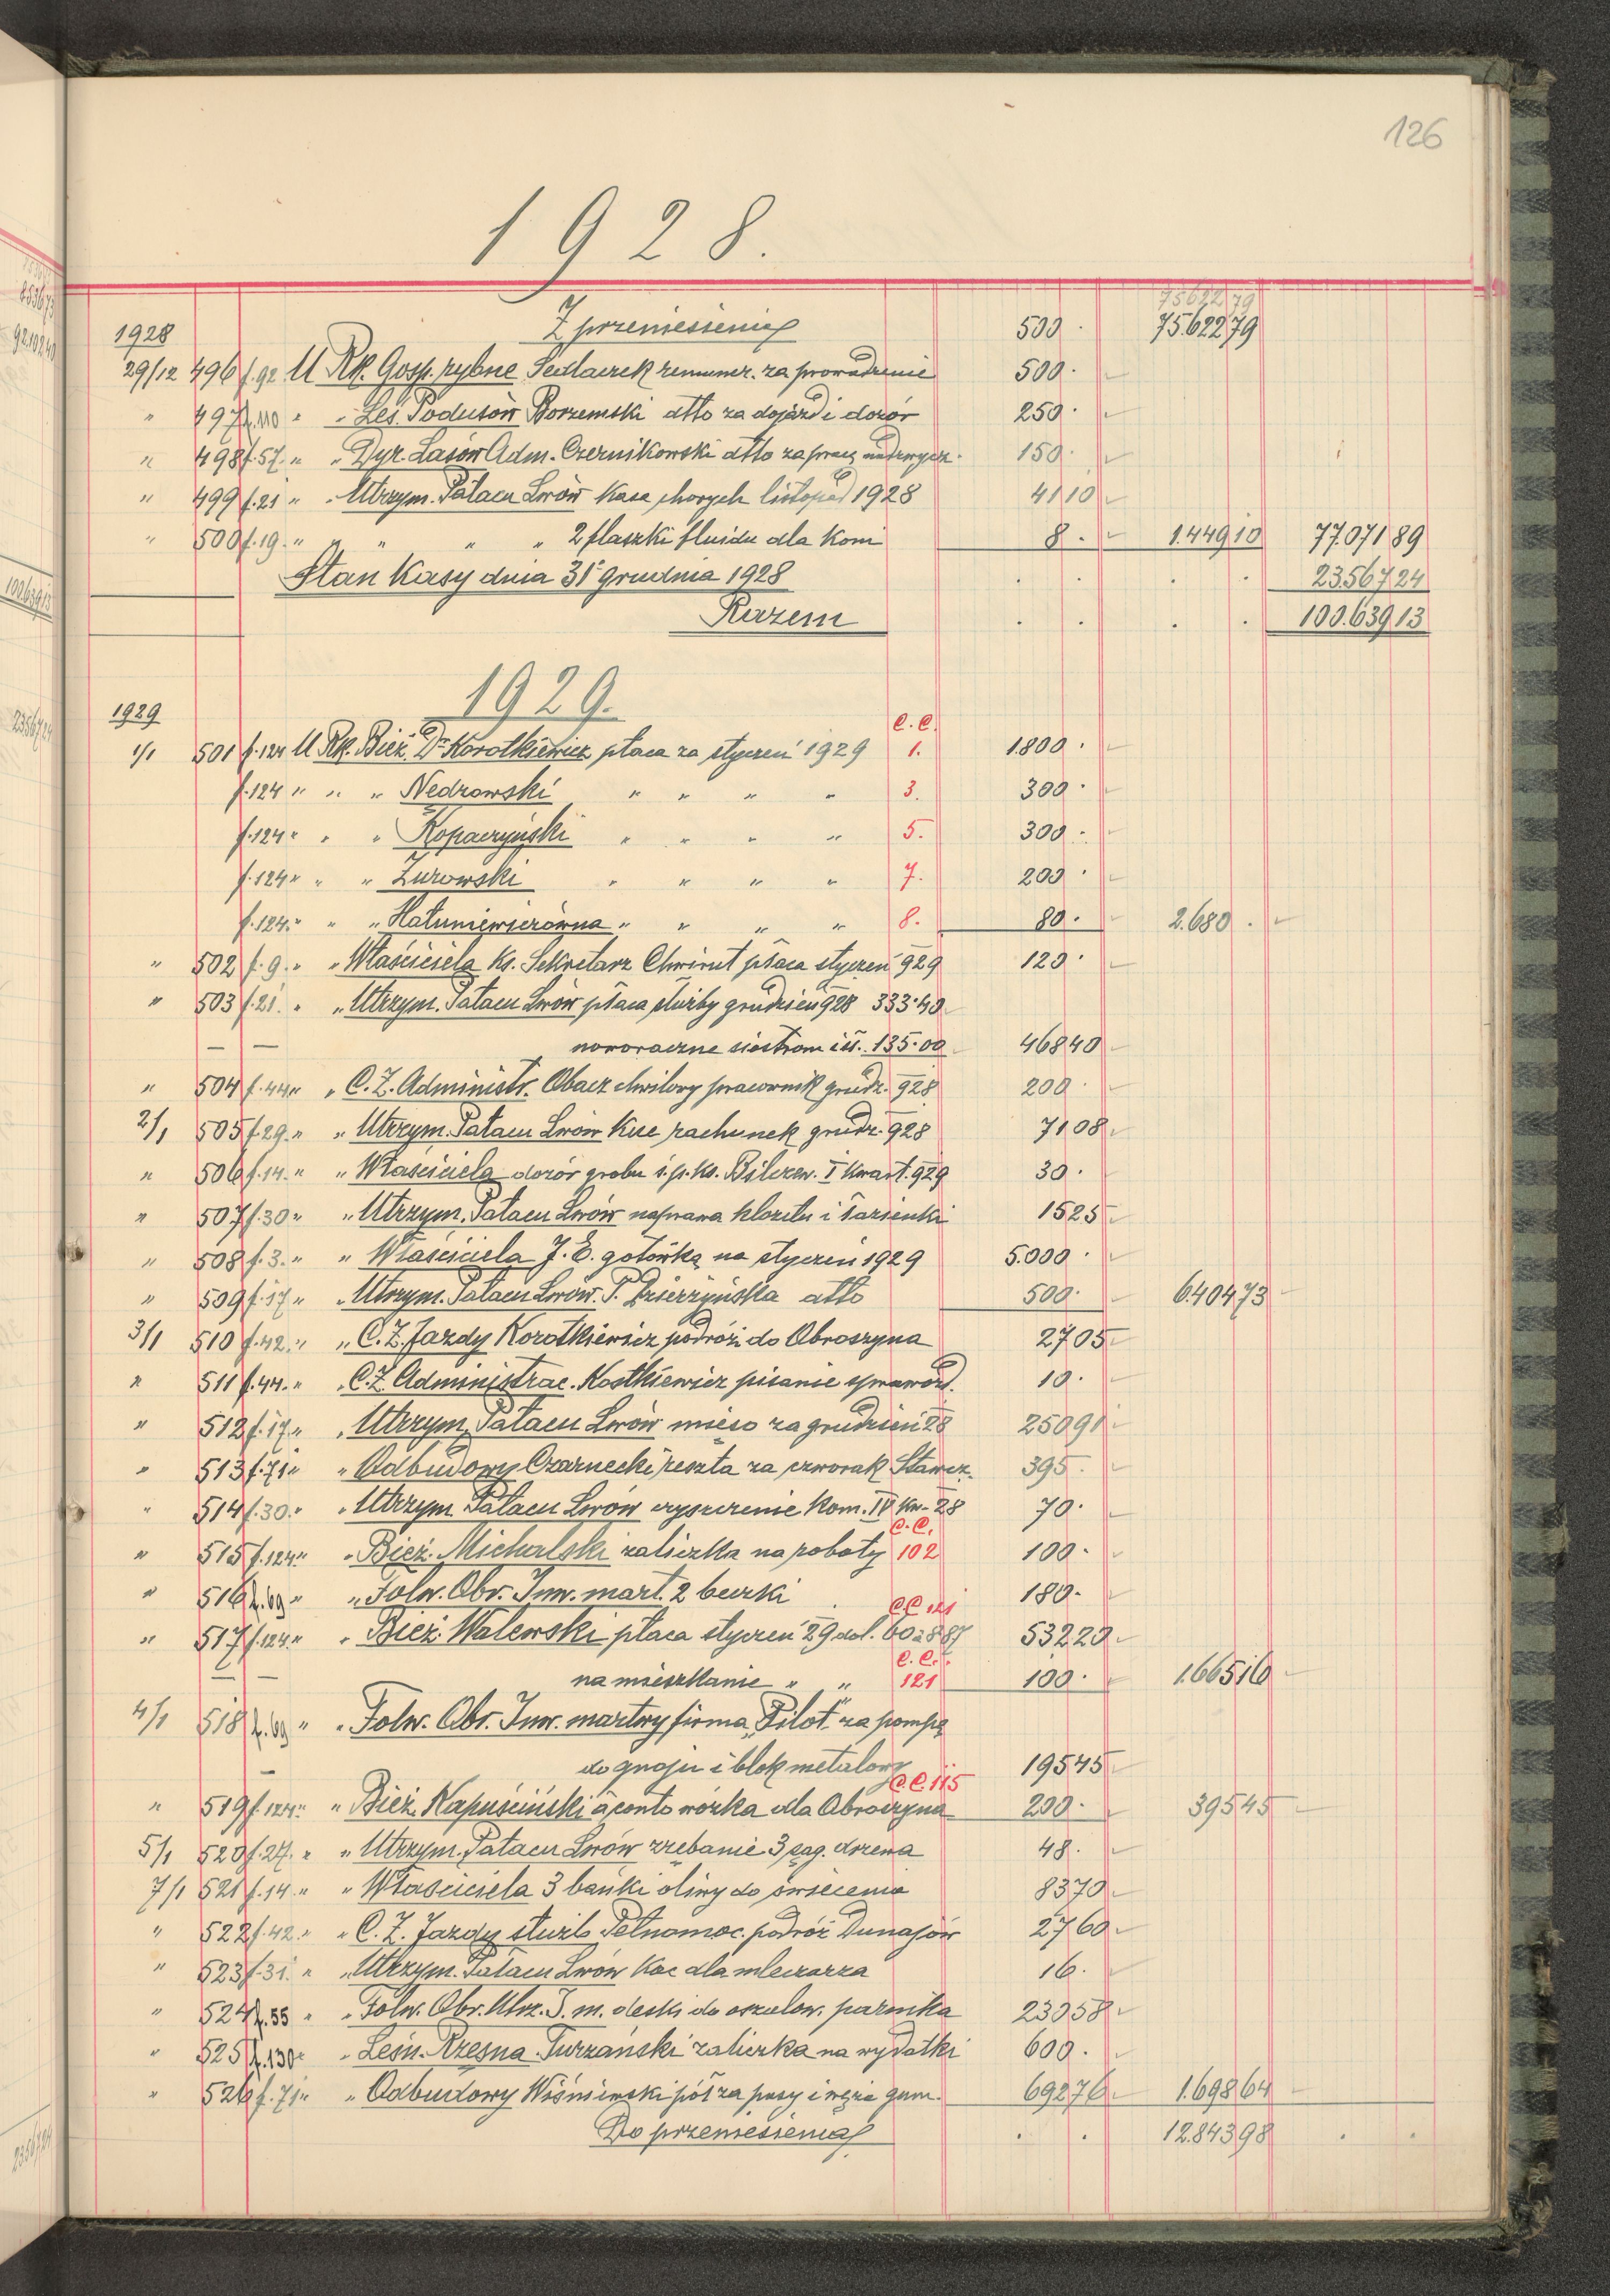 126
1928.
75622 79
1928 Z przeniesienia 500 · 75.622 79
29/12 496 f.92 U Rk. Gosp. rybne Sedlaczek remuner. za prowadzenie 500 ·
" 497 f.110 " " Leś. Podusów Borzemski dtto za dojazd i dozór 250 ·
" 498 f.57 " " Dyr. Lasów Adm. Czernikowski dtto za pracę nadzwycz. 150 ·
" 499 f.21 " " Utrzym. Pałacu Lwów Kasa chorych listopad 1928 41 10
" 500 f.19 " " " " " 2 flaszki fluidu dla koni 8 · 1.449 10 77.071 89
Stan Kasy dnia 31º grudnia 1928 · · · · 23.567 24
Razem · · · · 100.639 13
1929.
1929 C.C.
1/1 501 f.124 U Rk. Bież. Dr Korotkiewicz płaca za styczeń 1929 1. 1.800 ·
f.124 " " " Nedzowski " " " " 3. 300 ·
f.124 " " " Kopaczyński " " " " 5. 300 ·
f.124 " " " Żurowski " " " " 7. 200 ·
f.124 " " " Hałuniewiczówna " " " " 8. 80 · 2.680 ·
" 502 f.9 " " Właściciela Ks. Sekretarz Chwirut płaca styczeń 929 120 ·
" 503 f.21 " " Utrzym. Pałacu Lwów płaca służby grudzień 928 333·40
— — noworoczne siostrom i sł. 135·00 468 40
" 504 f.44 " " C. Z. Administr. Obacz chwilowy pracownik grudz. 928 200 ·
2/1 505 f.29 " " Utrzym. Pałacu Lwów Kuc rachunek grudz. 928 71 08
" 506 f.14 " " Właściciela dozór grobu ś.p. Ks. Bilczew. I Kwart. 929 30 ·
" 507 f.30 " " Utrzym. Pałacu Lwów naprawa klozetu i łazienki 15 25
" 508 f.3 " " Właściciela J. E. gotówką na styczeń 1929 5.000 ·
" 509 f.17 " " Utrzym. Pałacu Lwów. P. Dzierżyńska dtto 500 · 6.404 73
3/1 510 f.42 " " C. Z. Jazdy Korotkiewicz podróż do Obroszyna 27 05
" 511 f.44 " " C. Z. Administrac. Kostkiewicz pisanie sprawozd. 10 ·
" 512 f.17 " " Utrzym. Pałacu Lwów mięso za grudzień 28 250 91
" 513 f.71 " " Odbudowy Czarnecki reszta za czworak Stawcz. 395 ·
" 514 f.30 " " Utrzym. Pałacu Lwów czyszczenie kom. IV kw. 28 70 ·
C.C.
" 515 f.124 " " Bież. Michalski zaliczka na roboty 102 100 ·
" 516 f.69 " " Folw. Obr. Inw. mart. 2 beczki 180 ·
C.C. 121
" 517 f.124 " " Bież. Walewski płaca styczeń 29 dol. 60 à 8·87 532 20
C.C.
— — na mieszkanie " " 121 100 · 1.665 16
4/1 518 f.69 " " Folw. Obr. Inw. martwy firma „Pilot" za pompę
— do gnoju i blok metalowy 195 45
C.C. 115
" 519 f.124 " " Bież. Kapuściński à conto wózka dla Obroszyna 200 · 395 45
5/1 520 f.27 " " Utrzym. Pałacu Lwów zrębanie 3 sąg. drzewa 48 ·
7/1 521 f.14 " " Właściciela 3 bańki oliwy do świecenia 83 70
" 522 f.42 " " C. Z. Jazdy służb. Pełnomoc. podróż Dunajów 27 60
" 523 f.31 " " Utrzym. Pałacu Lwów koc dla mleczarza 16 ·
" 524 f.55 " " Folw. Obr. Utrz. I. m. deski do oszalow. parnika 230 58
" 525 f.130 " " Leśn. Rzęsna Turzański zaliczka na wydatki 600 ·
" 526 f.71 " " Odbudowy Wiśniewski pół za pasy i węże gum. 692 76 1.698 64
Do przeniesienia · · 12.843 98 · ·